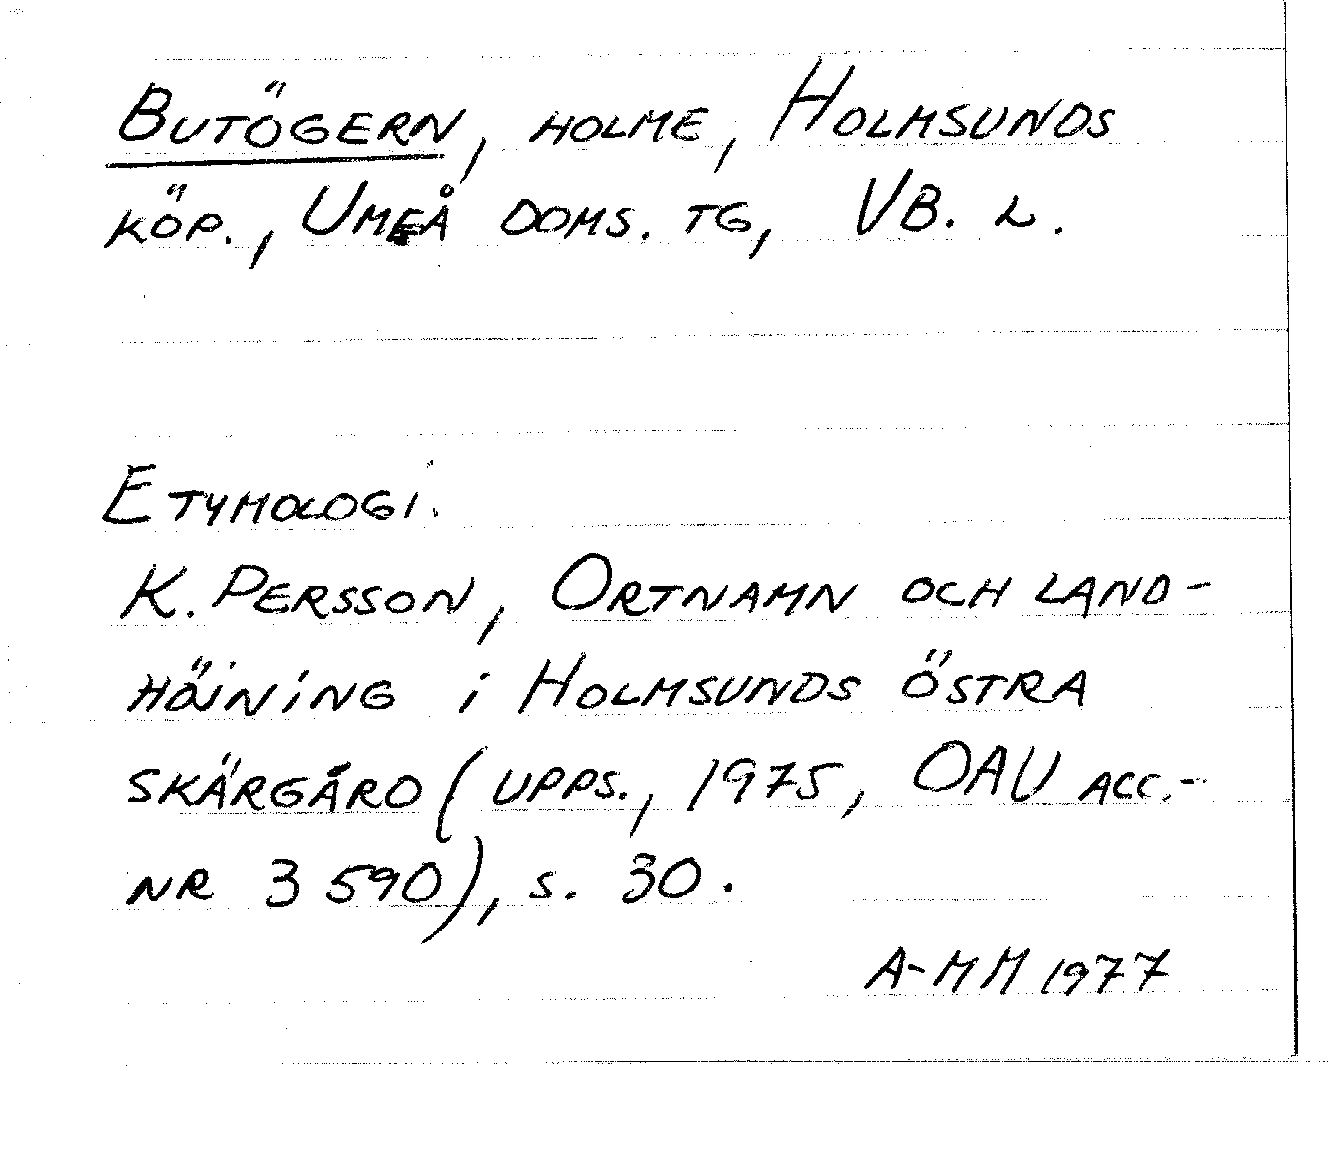 BUTÖGERN, HOLME, HOLMSUNDS
KÖP., UMEÅ DOMS. TG, VB. L.
ETYMOLOGI.
K. PERSSON, ORTNAMN OCH LAND-
HÖJNING i HOLMSUNDS ÖSTRA
SKÄRGÅRD (UPPS., 1975, OAU ACC.-
NR 3 590), S. 30.
A-MM 1977